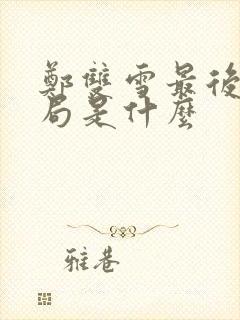 鄭雙雪最後
局是什麼
雅巷